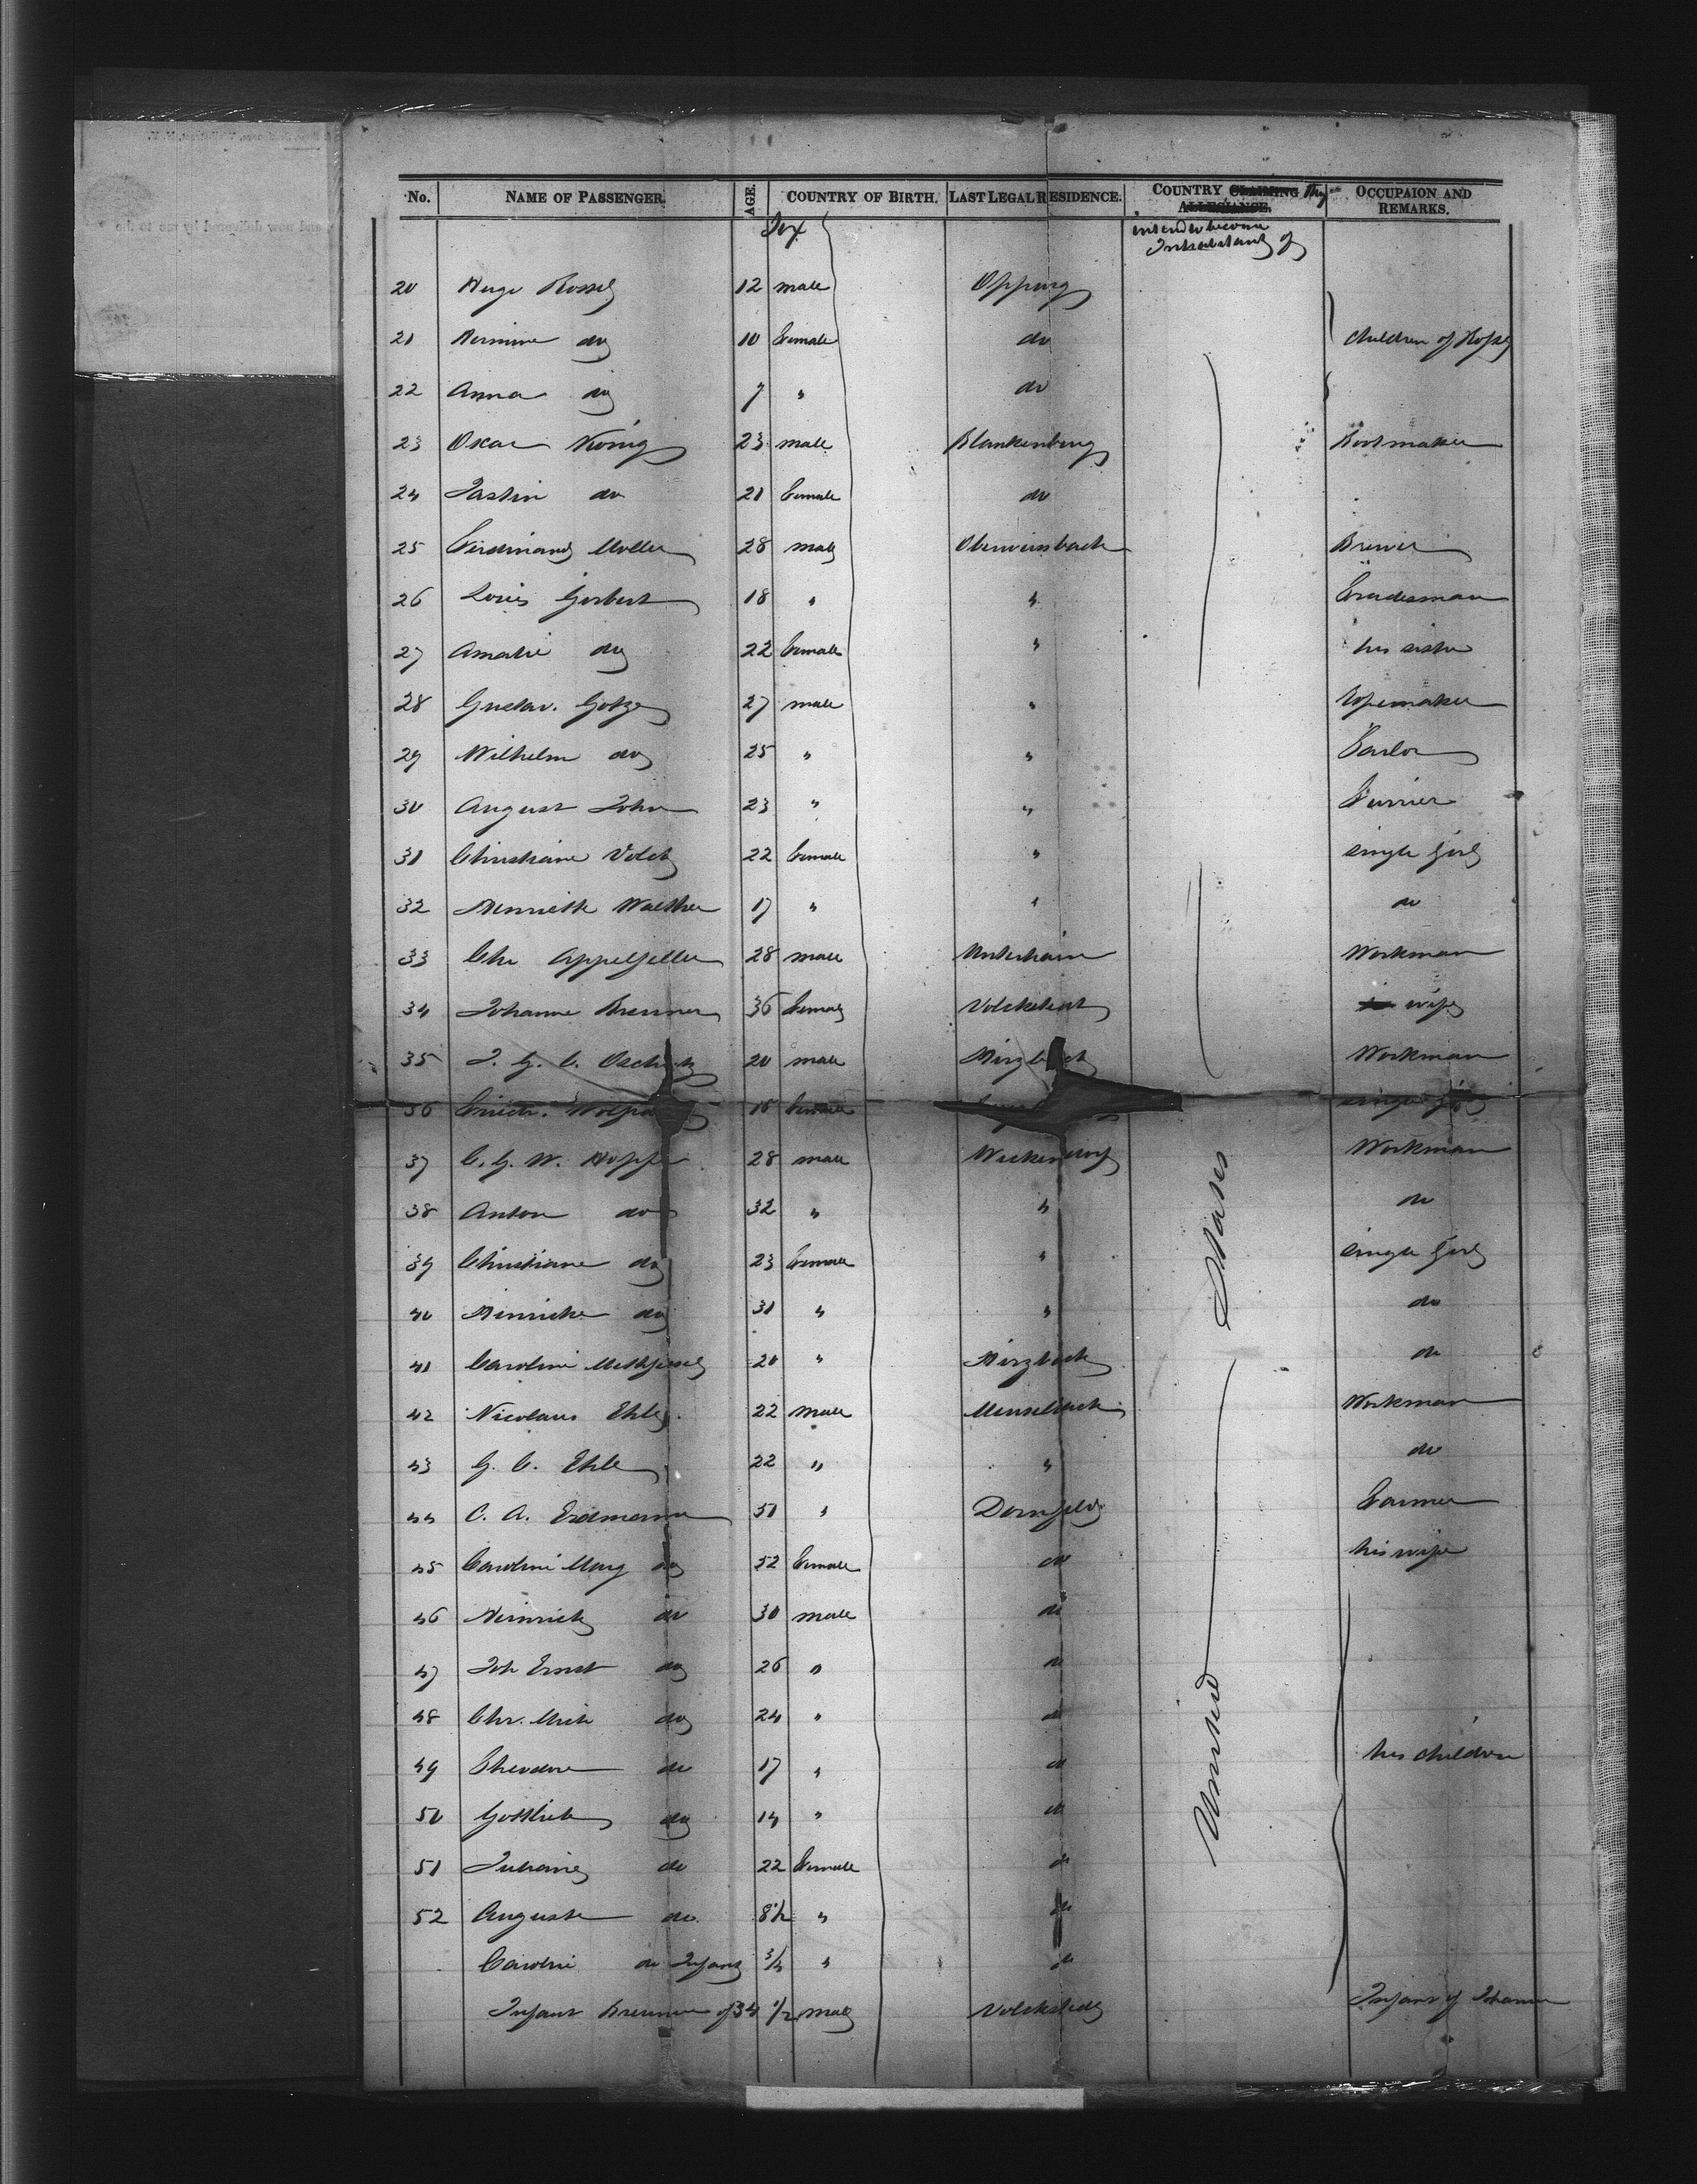 No. NAME OF PASSENGER. AGE. COUNTRY OF BIRTH. LAST LEGAL RESIDENCE. COUNTRY CLAIMING they ALLEGIANCE. OCCUPAION AND REMARKS.
Sex intend to become Inhabitants of
20 Hugo Rossel 12 male Oppurg
21 Hermine do 10 female do children of
22 Anna do 7 " do
23 Oscar König 23 male Blankenburg Bootmaker
24 do 21 female do
25 Ferdinand Moller 28 male Oberweissbach Brewer
26 Louis Gerbert 18 " " Tradesman
27 Amalie do 22 female " his sister
28 Gustav. Gotze 27 male " Ropemaker
29 Wilhelm do 25 " " Tailor
30 August John 23 " " Furrier
31 Christiane 22 female " single girl
32 Henriette Walther 17 " " do
33 Chr Appelfeller 28 male Unterhain Workman
34 Johanne Brenner 36 female Volckstedt wife
35 J. G. C. 20 male Workman
36 16 female single girl
37 C. G. W. Hoppe 28 male Workman
38 Anton do 32 " " do
39 Christiane do 23 female " single girl
40 do 31 " " do
41 Caroline 20 " do
42 Nicolaus Ehle 22 male Meuselbach Workman
43 G. C. Ehle 22 " " do
44 C. A. Erdmann 51 " Dornfeld Farmer
45 Caroline Marg do 52 female do his wife
46 Heinrich do 30 male do
47 Joh Ernst do 26 " do
48 Chr. do 24 " do
49 Theodore do 17 " do his children
50 Gottlieb do 14 " do
51 do 22 female do
52 Auguste do. 8½ " do
Caroline do Infant 3/4 " do
Infant Brenner of 34 1/2 male Volckstedt Infant of Johanne
United States